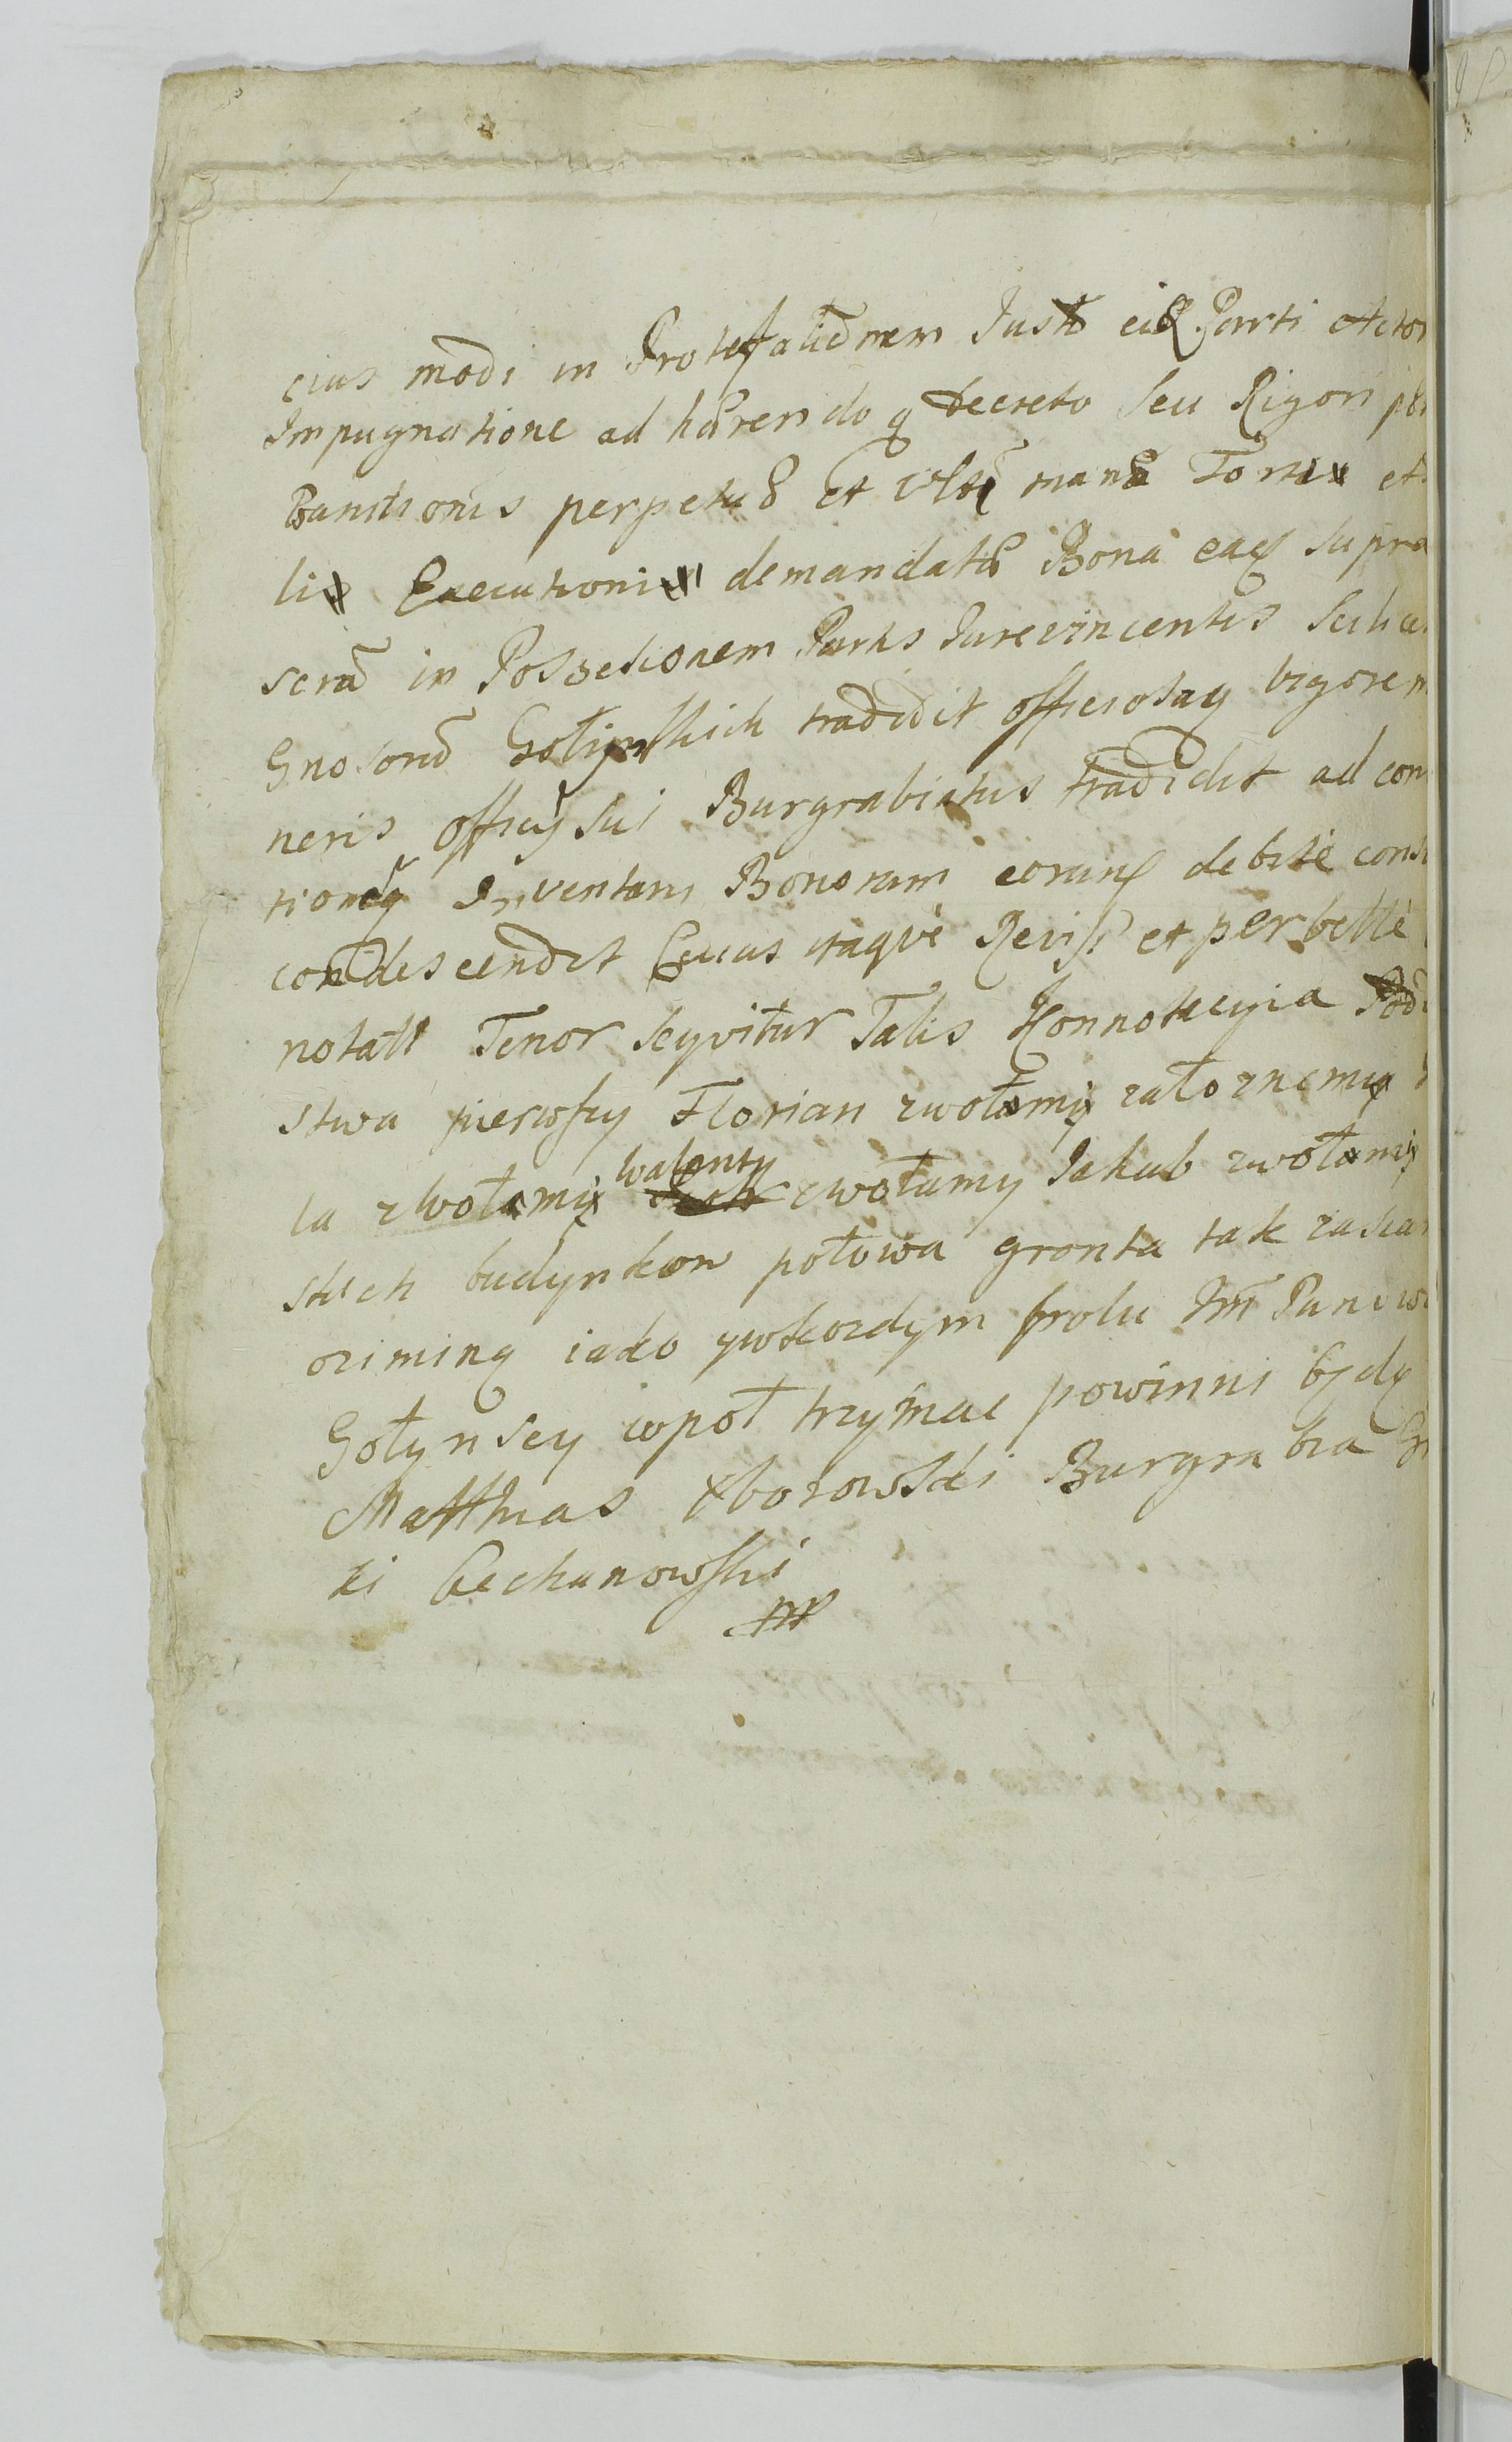 eius modi in Protestationem Justa eisd Parti Actor
Impugnatione ad hærendoq Decreto Seu Rigori
Banitionis perpetuæ et
Executioni demandatæ Bona eaq supra
scrā in Possesionem Partis Jurevincentis Scilicet
Gnosorū Gołynskich tradidit offierotaq vigorem
neris officÿ sui Burgrabiatus tradidit ad con
tionēq Inventarij Bonorum eorunq debitè cons
condescendit Cuius itaqvè Reviss et perbellè
notati Tenor seqvitur Talis Konnotacyia Podd
stwa pierwszy Florian zwołamy załoznemy
la zwołamy walenty zwołamy Jakub zwołamy
skich budynkow połowa gronta tak zasian
oziminą iako ywkozdym polu Im Panowi
Gołynscy wpoł trzymac powinni będą
Matthias Zborowski Burgrabia Gr
ki Ciechanowski
mp